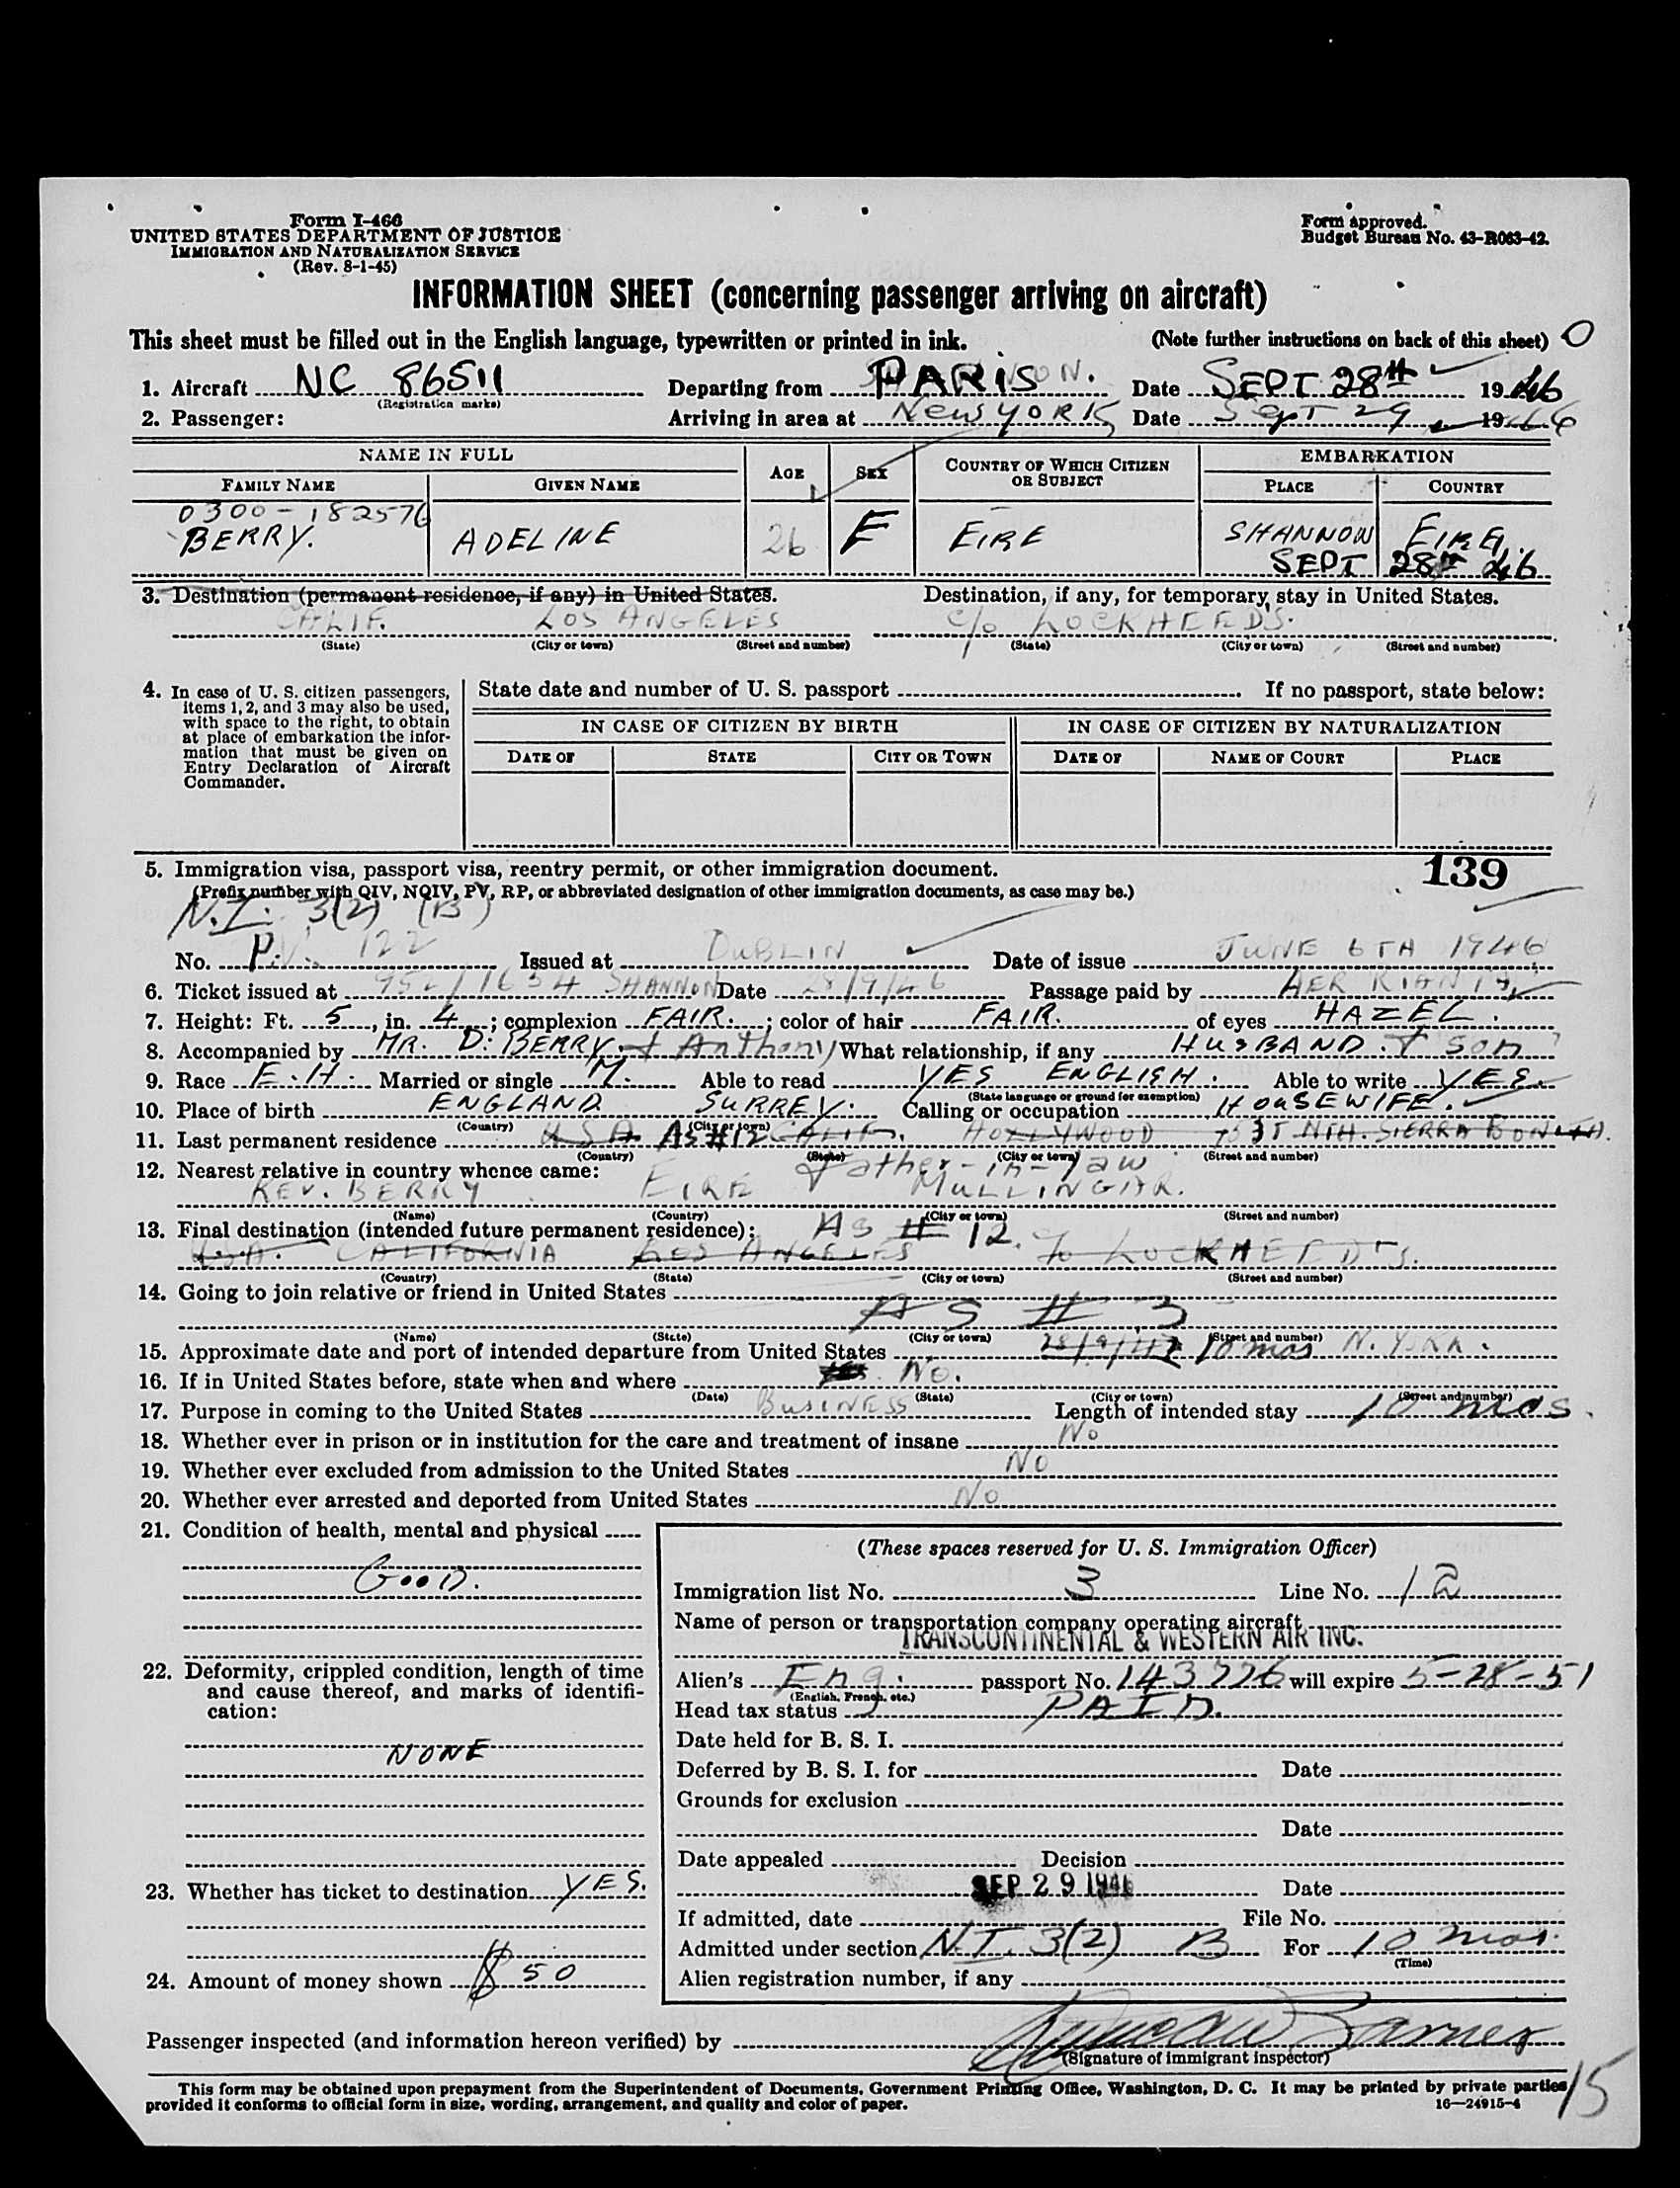 Form I-466
UNITED STATES DEPARTMENT OF JUSTICE
IMMIGRATION AND NATURALIZATION SERVICE
(Rev. 8-1-45)
Form approved.
Budget Bureau No. 43-R063-42.
INFORMATION SHEET (concerning passenger arriving on aircraft)
This sheet must be filled out in the English language, typewritten or printed in ink. (Note further instructions on back of this sheet) O
1. Aircraft NC 86511 Departing from PARIS Date SEPT 28TH 1946
(Registration marks)
2. Passenger: Arriving in area at New YORK Date Sept 29 1946
NAME IN FULL AGE SEX COUNTRY OF WHICH CITIZEN OR SUBJECT EMBARKATION
FAMILY NAME GIVEN NAME PLACE COUNTRY
0300-182576
BERRY. ADELINE 26 F EIRE SHANNON EIRE.
SEPT 28TH 46
3. Destination (permanent residence, if any) in United States. Destination, if any, for temporary stay in United States.
CALIF. LOS ANGELES c/o LOCKHEEDS.
(State) (City or town) (Street and number) (State) (City or town) (Street and number)
4. In case of U. S. citizen passengers, items 1, 2, and 3 may also be used, with space to the right, to obtain at place of embarkation the information that must be given on Entry Declaration of Aircraft Commander.
State date and number of U. S. passport If no passport, state below:
IN CASE OF CITIZEN BY BIRTH IN CASE OF CITIZEN BY NATURALIZATION
DATE OF STATE CITY OR TOWN DATE OF NAME OF COURT PLACE
5. Immigration visa, passport visa, reentry permit, or other immigration document. 139
(Prefix number with QIV, NQIV, PV, RP, or abbreviated designation of other immigration documents, as case may be.)
N.I. 3(2) (B)
No. P.V. 122 Issued at DUBLIN Date of issue JUNE 6TH 1946
6. Ticket issued at SHANNON Date 28/9/46 Passage paid by AER RIANTA
7. Height: Ft. 5, in. 4; complexion FAIR.; color of hair FAIR. of eyes HAZEL.
8. Accompanied by MR. D. BERRY. + Anthony What relationship, if any HUSBAND. + son
9. Race E.H. Married or single M. Able to read YES ENGLISH. Able to write YES.
(State language or ground for exemption)
10. Place of birth ENGLAND SURREY. Calling or occupation HOUSEWIFE.
(Country) (City or town)
11. Last permanent residence USA As #12 CALIF. HOLLYWOOD NTH. SIERRA BONITA.
(Country) (State) (City or town) (Street and number)
12. Nearest relative in country whence came: father-in-law
REV. BERRY EIRE MULLINGAR.
(Name) (Country) (City or town) (Street and number)
13. Final destination (intended future permanent residence): AS # 12.
U.S.A. CALIFORNIA LOS ANGELES c/o LOCKHEED'S.
(Country) (State) (City or town) (Street and number)
14. Going to join relative or friend in United States
AS # 3
(Name) (State) (City or town) (Street and number)
15. Approximate date and port of intended departure from United States 28/9/47 10 mos N. YORK.
16. If in United States before, state when and where No.
(Date) (State) (City or town) (Street and number)
17. Purpose in coming to the United States BUSINESS Length of intended stay 10 mos.
18. Whether ever in prison or in institution for the care and treatment of insane No
19. Whether ever excluded from admission to the United States No
20. Whether ever arrested and deported from United States No
21. Condition of health, mental and physical
GOOD.
22. Deformity, crippled condition, length of time and cause thereof, and marks of identification:
NONE
23. Whether has ticket to destination YES.
24. Amount of money shown $ 50
(These spaces reserved for U. S. Immigration Officer)
Immigration list No. 3 Line No. 12
Name of person or transportation company operating aircraft
TRANSCONTINENTAL & WESTERN AIR INC.
Alien's Eng. passport No. 143726 will expire 5-28-51
(English, French, etc.)
Head tax status PAID.
Date held for B. S. I.
Deferred by B. S. I. for Date
Grounds for exclusion
Date
Date appealed Decision
SEP 29 1946 Date
If admitted, date File No.
Admitted under section N.I. 3(2) B For 10 mos.
(Time)
Alien registration number, if any
Passenger inspected (and information hereon verified) by
(Signature of immigrant inspector)
This form may be obtained upon prepayment from the Superintendent of Documents, Government Printing Office, Washington, D. C. It may be printed by private parties
provided it conforms to official form in size, wording, arrangement, and quality and color of paper. 16—24915-4
15